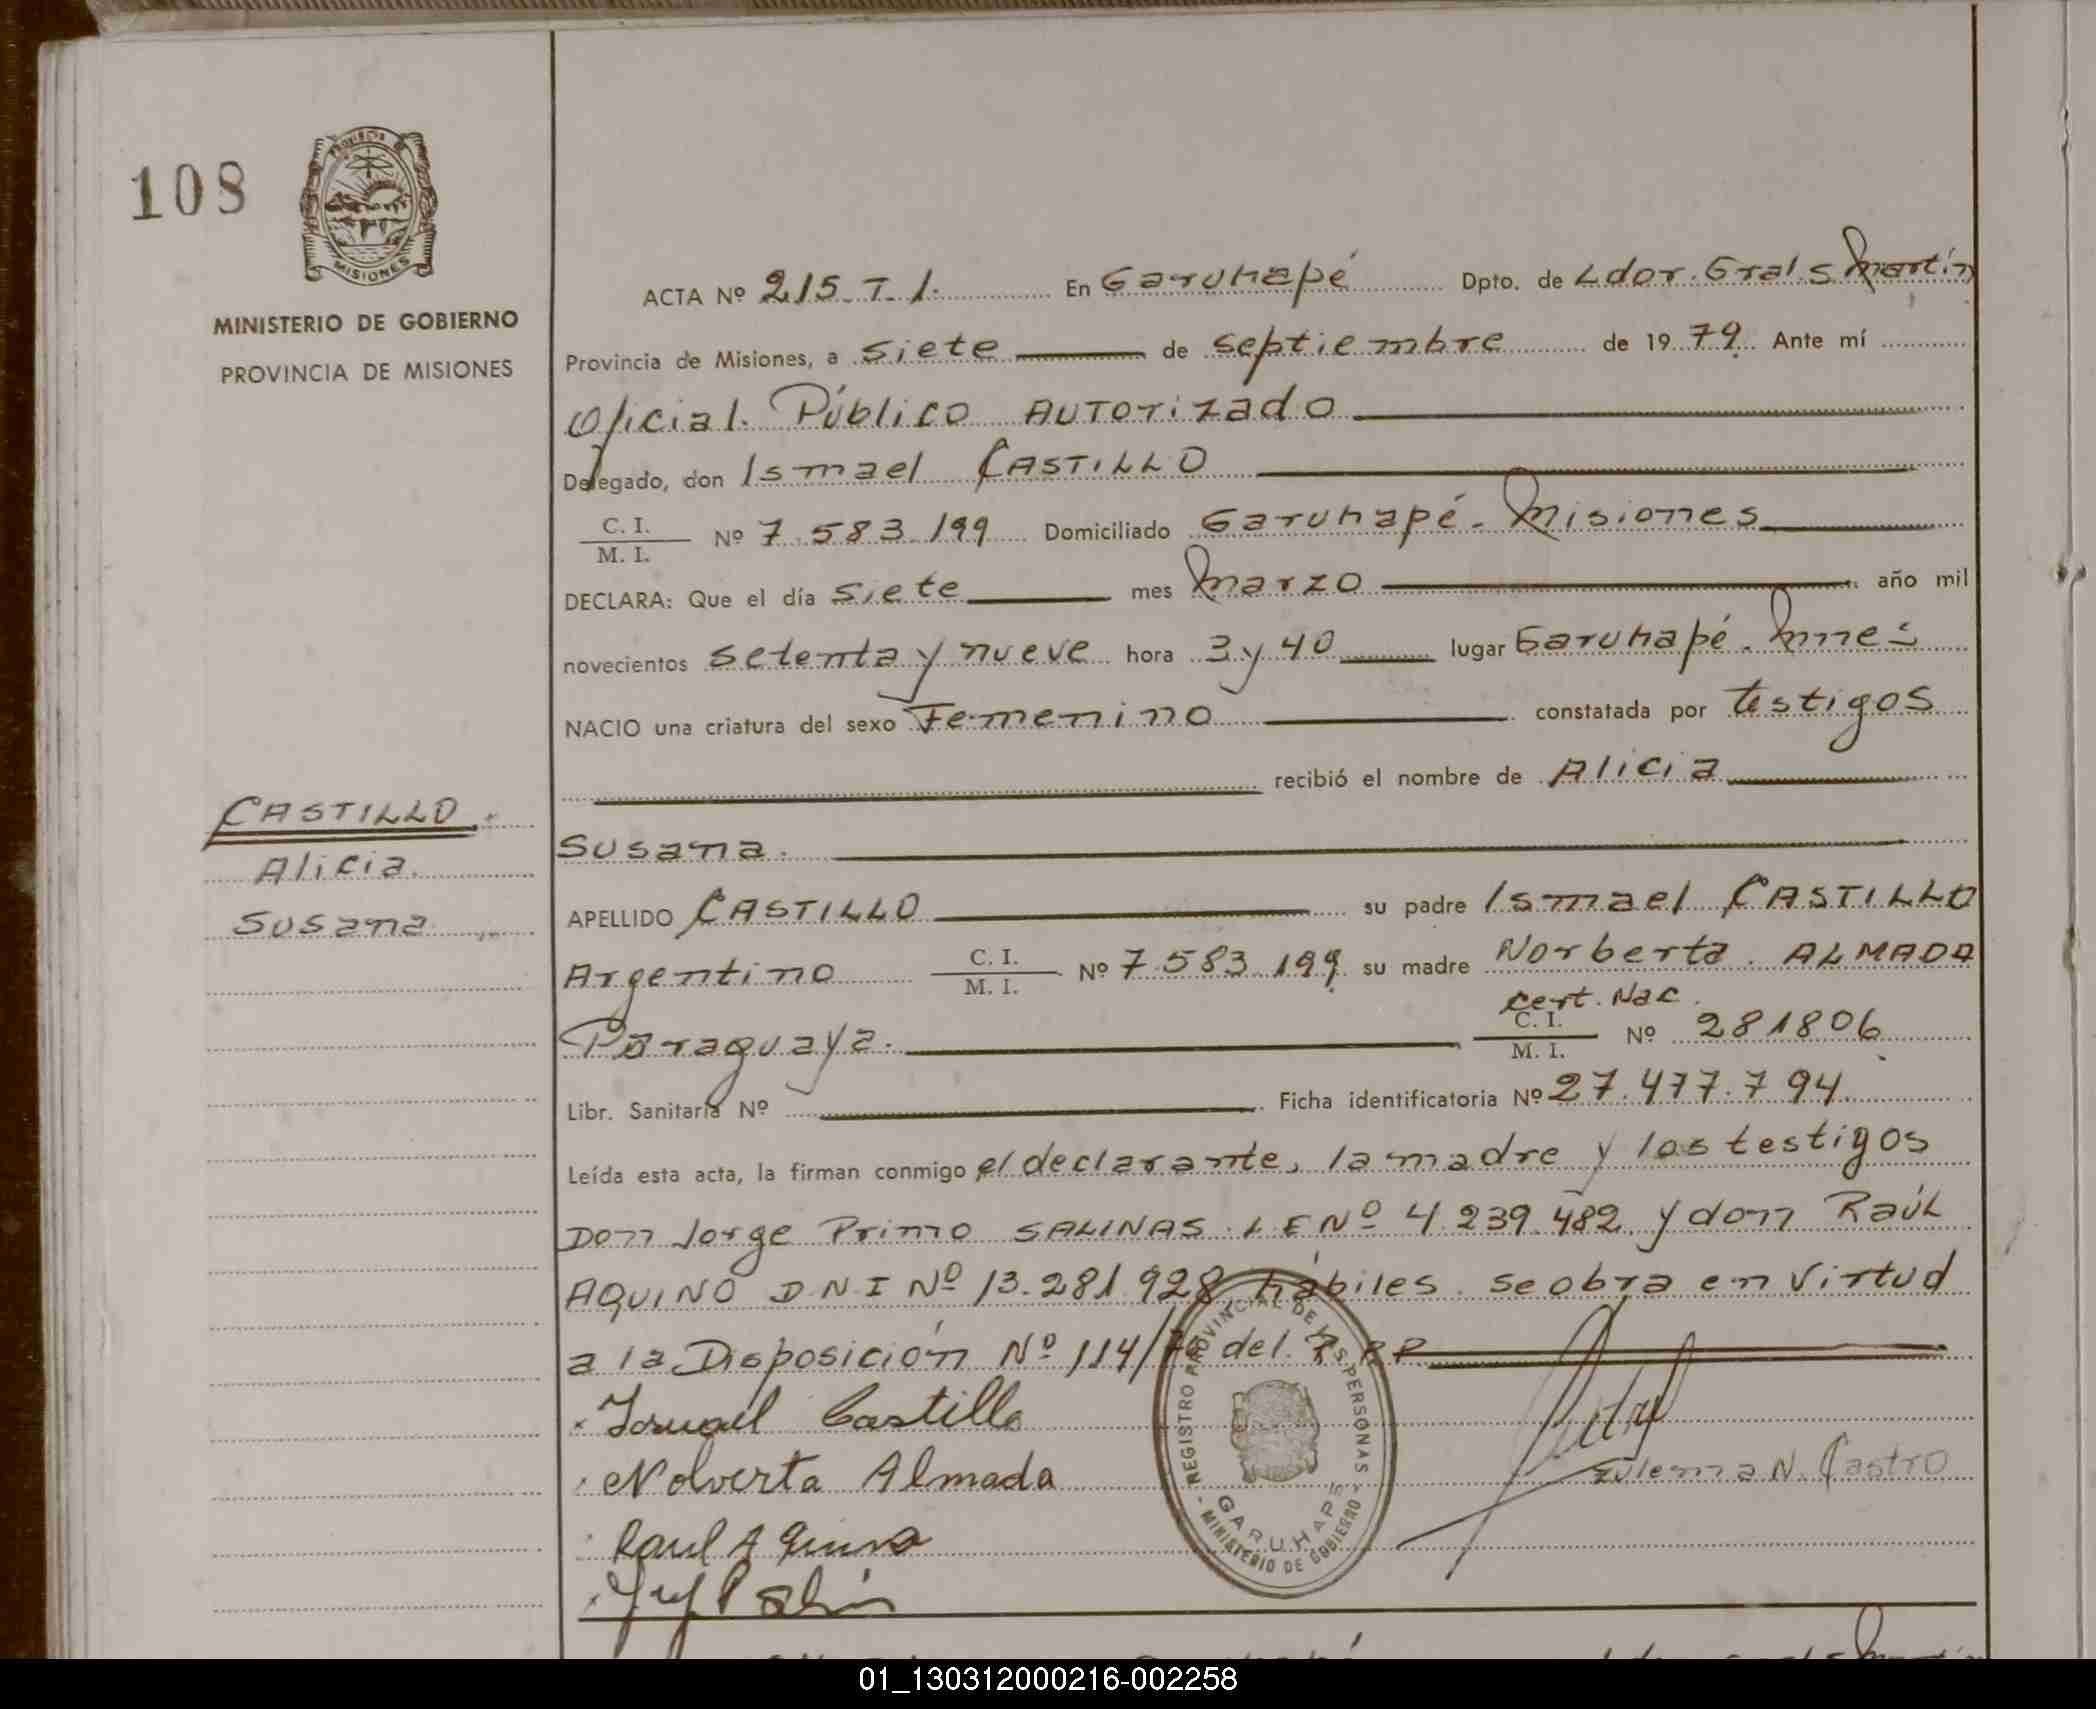 108
PROVINCIA DE
MISIONES
MINISTERIO DE GOBIERNO
PROVINCIA DE MISIONES
CASTILLO
Alicia
Susana
ACTA Nº 215 T 1. En Garuhapé Dpto. de Ldor. Gral. S. Martín
Provincia de Misiones, a siete de septiembre de 1979. Ante mí
Oficial Público Autorizado
Delegado, don Ismael CASTILLO
C. I.
M. I. Nº 7.583.199 Domiciliado Garuhapé - Misiones
DECLARA: Que el día siete mes marzo año mil
novecientos setenta y nueve hora 3 y 40 lugar Garuhapé. Mnes
NACIO una criatura del sexo Femenino constatada por testigos
recibió el nombre de Alicia
Susana.
APELLIDO CASTILLO su padre Ismael CASTILLO
Argentino C. I. M. I. Nº 7.583.199 su madre Norberta ALMADA
Paraguaya. cert. Nac. C. I. M. I. Nº 281806
Libr. Sanitaria Nº Ficha identificatoria Nº 27.477.794
Leída esta acta, la firman conmigo el declarante, la madre y los testigos
Don Jorge Primo SALINAS L E Nº 4.239.482 y don Raúl
AQUINO D.N.I Nº 13.281.928 hábiles. se obra en virtud
a la Disposición Nº 114/ del R P P
Ismael Castillo
Nolverta Almada
Raul Aquino
Zulema N. Castro
REGISTRO PROVINCIAL DE LAS PERSONAS
GARUHAPE
MINISTERIO DE GOBIERNO
01_130312000216-002258